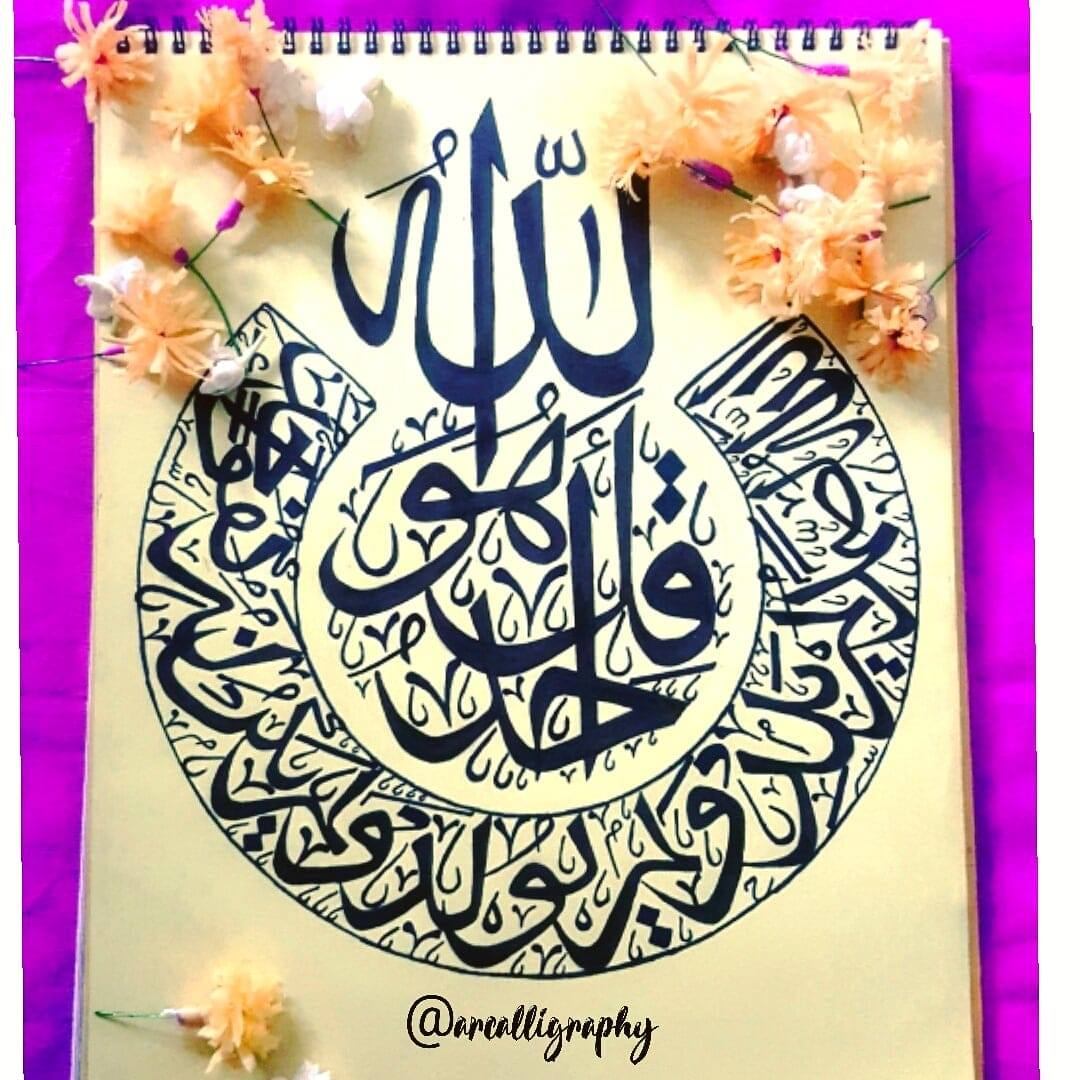 قل هو الله أحد
الله الصمد لم يلد ولم يولد ولم يكن له كفوا أحد
@arcalligraphy